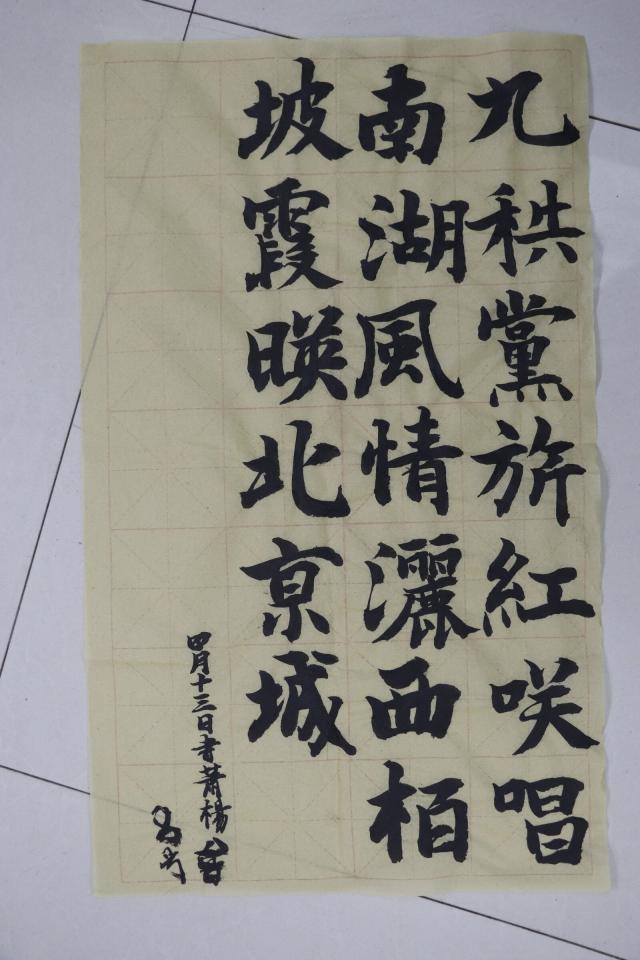 九秩黨旂紅咲唱
南湖風情灑西柏
坡霞暎北京城
四月十三日书萧楊